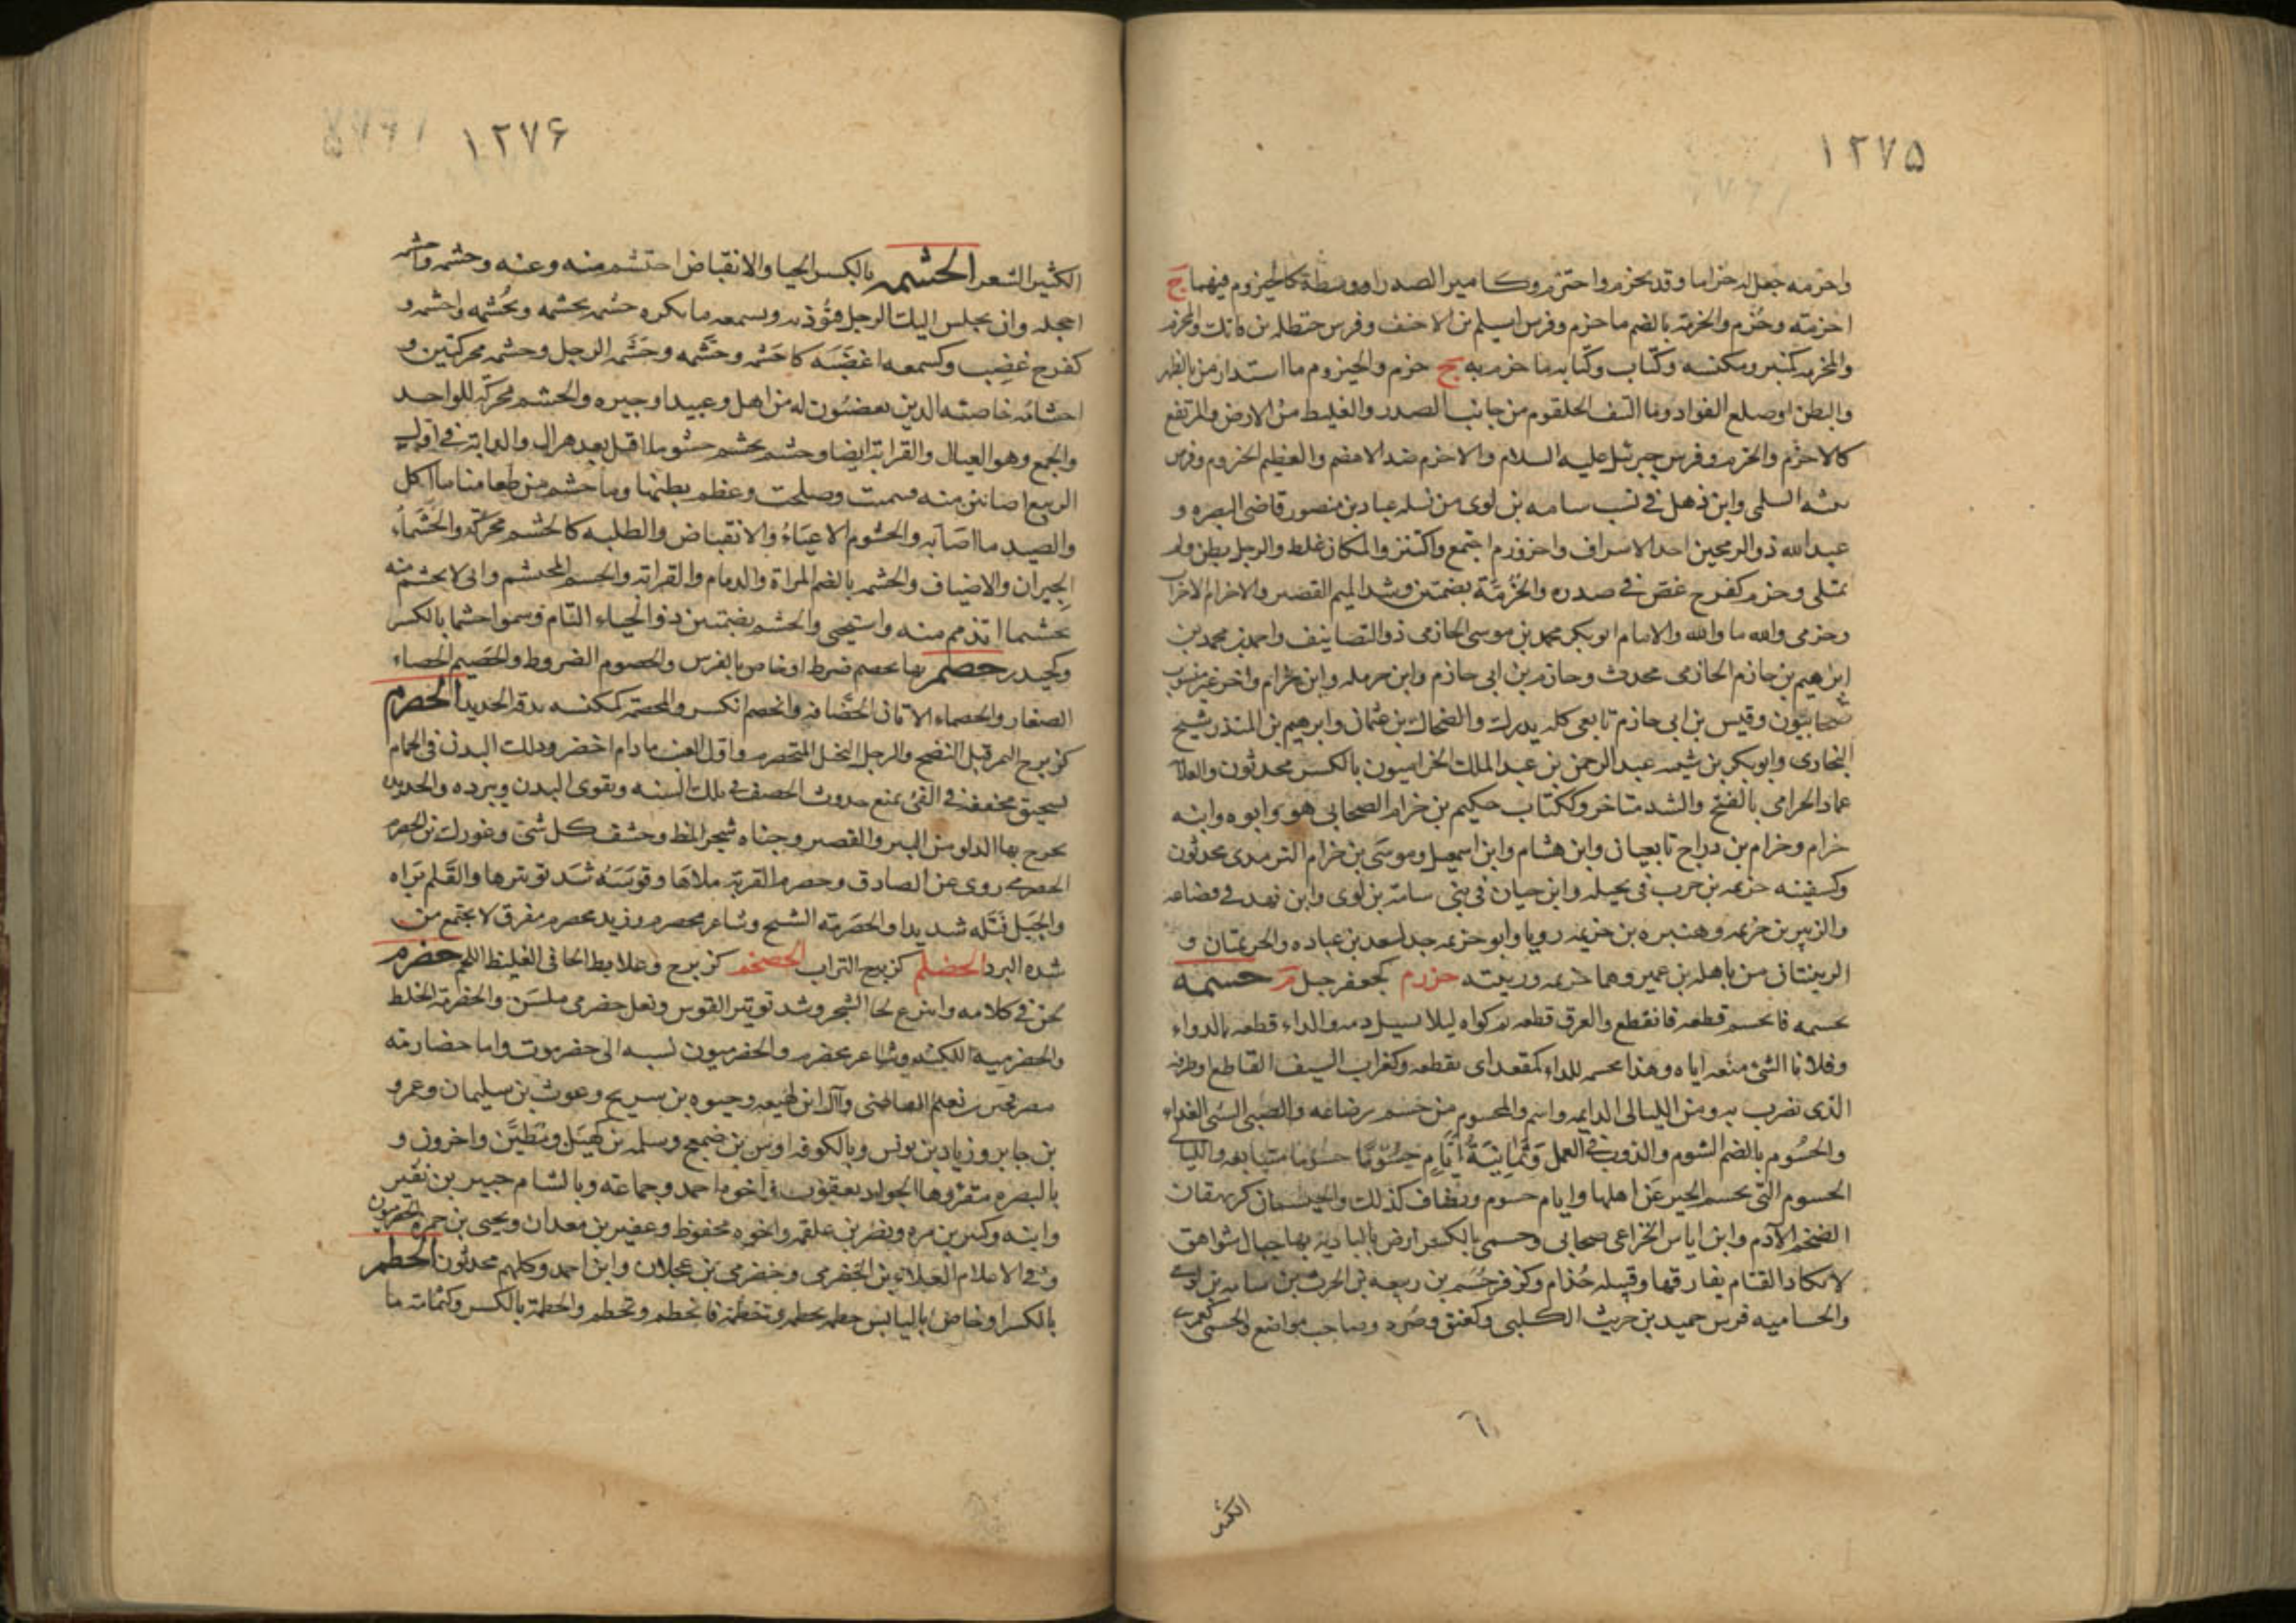 ١٢٧٥
واحزمه جعل له حزاما وقد تحزم واحتزم وكامير الصدر او وسطة كالحيزوم فيهما ج
احزمته وحزم والحزمة بالضم ما حزم وفرس اسيلم بن الاحنف وفرس حنظله بن فاتك والمحزم
والمحزمه كمنبر ومكنسه وكتاب وكتابه ما حزم به ج حزم والحيزوم ما استدار من بالظهر
والبطن او ضلع الفواد وما اكتنف الحلقوم من جانب الصدر والغليظ من الارض والمرتفع
كالاحزم والحزم وفرس جبرئيل عليه السلام والاحزم ضد الاهضم والعظيم الحيزوم وفرس
السلمى وابن ذهل فى نسب سامه بن لوى من نسله عباد بن منصور قاضى البصره و
عبد الله ذو الرمحين احد الاشراف واحزوزم اجتمع واكتنز والمكان غلظ والرجل بطن ولم
يمتلى وحزم كفرح غص فى صدره والحزمة بضمتين وشد الميم القصير والاحزام الاخزاب
وحزمى والله ما والله والامام ابو بكر محمد بن موسى الحازمى ذو التصانيف واحمد بن محمد بن
ابرهيم بن حازم الحازمى محدث وحازم بن ابى حازم وابن حرمله وابن حزام واخر غير منسوب
صحابيون وقيس بن ابى حازم تابعى كله يدرك والضحاك بن عثمان وابرهيم بن المنذر شيخ
البخارى وابو بكر بن شيبه عبد الرحمن بن عبد الملك الحزاميون بالكسر محدثون والعلا
عماد الحزامى بالفتح والشد متاخر وككتاب حكيم بن حزام الصحابى هو وابوه وابنه
حزام وحزام بن دراج تابعيان وابن هشام وابن اسمعيل وموسى بن حزام الترمدى محدثون
وكسفينه حزيمه بن حرب فى بجيله وابن حيان فى بنى سامة بن لوى وابن نهد فى قضاعه
والزبير بن حزيمه وهبيره بن حزيمه رويا وابو حزيمه جد لسعد بن عباده والحزيمتان و
الزبينتان من باهله بن عمير وهما حزيمه وزبينه حزرم كجعفر جبل م حسمه
يحسمه فانحسم قطعه فانقطع والعرق قطعه ثم كواه ليلا يسيل دمه والداء قطعه بالدواء
وفلانا الشئ منعه اياه وهذا محسمه للداء كمقعد اى يقطعه وكغراب السيف القاطع او طرفه
الذى تضرب به ومن الليالى الدايمه واسم والمحسوم من حسم رضاعه والصبى السئ الغذاء
والحسوم بالضم الشوم والدوب فى العمل وثمانية ايام حسوما متتابعه والليالى
الحسوم التى تحسم الخير عن اهلها وايام حسوم وتضاف كذلك والحيسمان كريهقان
الضخم الآدم وابن اياس الخزاعى صحابى وحسمى بالكسر ارض بالباديه بها جبال شواهق
لا يكاد القتام يفارقها وقبيله جذام وكزفر حسم بن ربيعه بن الحرث بن سامه بن لوى
والحساميه فرس حميد بن حريث الكلبى وكعنق وصرد وصاحب مواضع والحسمى كعربى
الكثير
١٢٧۶
الكثير الشعر الحشمه بالكسر الحيا والانقباض احتشم منه وعنه وحشمه واحشمه
اخجله وان يجلس اليك الرجل فتؤذيه وتسمعه ما يكره حشمه يحشمه ويحشمه واحشمه و
كفرح غضب وكسمعه اغضبه كاحشمه وحشمه وحشمه الرجل وحشمه محركتين و
احشامه خاصته الذين يغضبون له من اهل وعبيد او جيره والحشم محركه للواحد
والجمع وهو العيال والقرابة ايضا وحشم يحشم حشوما اقبل بعد هزال والدابة فى اول
الربيع اصابت منه فسمنت وصلحت وعظم بطنها وما حشم من طعامنا ما اكل
والصيد ما اصابه والحشوم الاعياء والانقباض والطلبه كالحشم محركه والحشماء
الجيران والاضياف والحشمه بالضم المراة والذمام والقرابه والحشم المحتشم وانى لا تحشم منه
تحشما اتذمم منه واستحيى والحشم بضمتين ذو الحياء التام وسموا حشما بالكسر
وكحيدر حصم بها يحصم ضرط او خاص بالفرس والحصوم الضروط والحصيم الحصاء
الصغار والحصماء الاتان الخضافه وانحصم انكسر والمحصمه كمكنسه مدقه الحديد الحصرم
كزبرج الثمر قبل النضج والرجل البخيل المتحصرم واول العنب ما دام اخضر ودلك البدن فى الحمام
بسحيق مجففه فى الفئ يمنع حدوث الحصف فى تلك السنه ويقوى البدن ويبرده والحديده
يخرج بها الدلو من البير والقصير وجناه شجر المظ وحشف كل شئ وغورك بن الحصرم
الحصرمى روى عن الصادق وحصرم القربة ملاها وقوسه شد توتيرها والقلم براه
والحبل فتله شديدا والحصرمة الشح وشاعر محصرم وزبد محصرم مفرق لا يجتمع من
شده البرد الحصلم كزبرج التراب الحضجم كزبرج وعلابط الجافى الغليظ اللحم حضرم
لحن فى كلامه وانتزع لحا الشجر وشد توتير القوس ونعل حضرمى ملسن والحضرمة الخلط
والحضرميه اللكنه وشاعر محضرم والحضرميون نسبه الى حضرموت واما حضارمه
مصر وآل ابن لهيعه وحيوه بن سريح وغوث بن سليمان وعمرو
بن جابر وزياد بن يونس وبالكوفه اوس بن ضمعج وسلمه بن كهيل ومطين واخرون و
بالبصره مقروها الجواد يعقوب واخوه احمد وجماعته وبالشام جبير بن نفير
وابنه وكثير بن مره ونصر بن علقمه واخوه محفوظ وعفير بن معدان ويحيى بن حمزه الحضرميون
وفى الاعلام العلاء بن الحضرمى وحضرمى بن عجلان وابن احمد وكلهم محدثون الحطم
بالكسر او خاص باليابس حطمه يحطمه وتحطمه فانحطم وتحطم والحطمة بالكسر وكثمامة ما